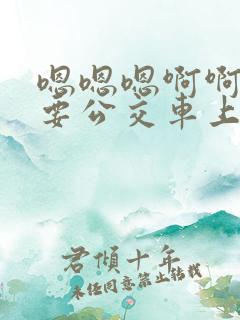 嗯嗯嗯啊啊
要公交車上
君傾十年
未经同意禁止转载